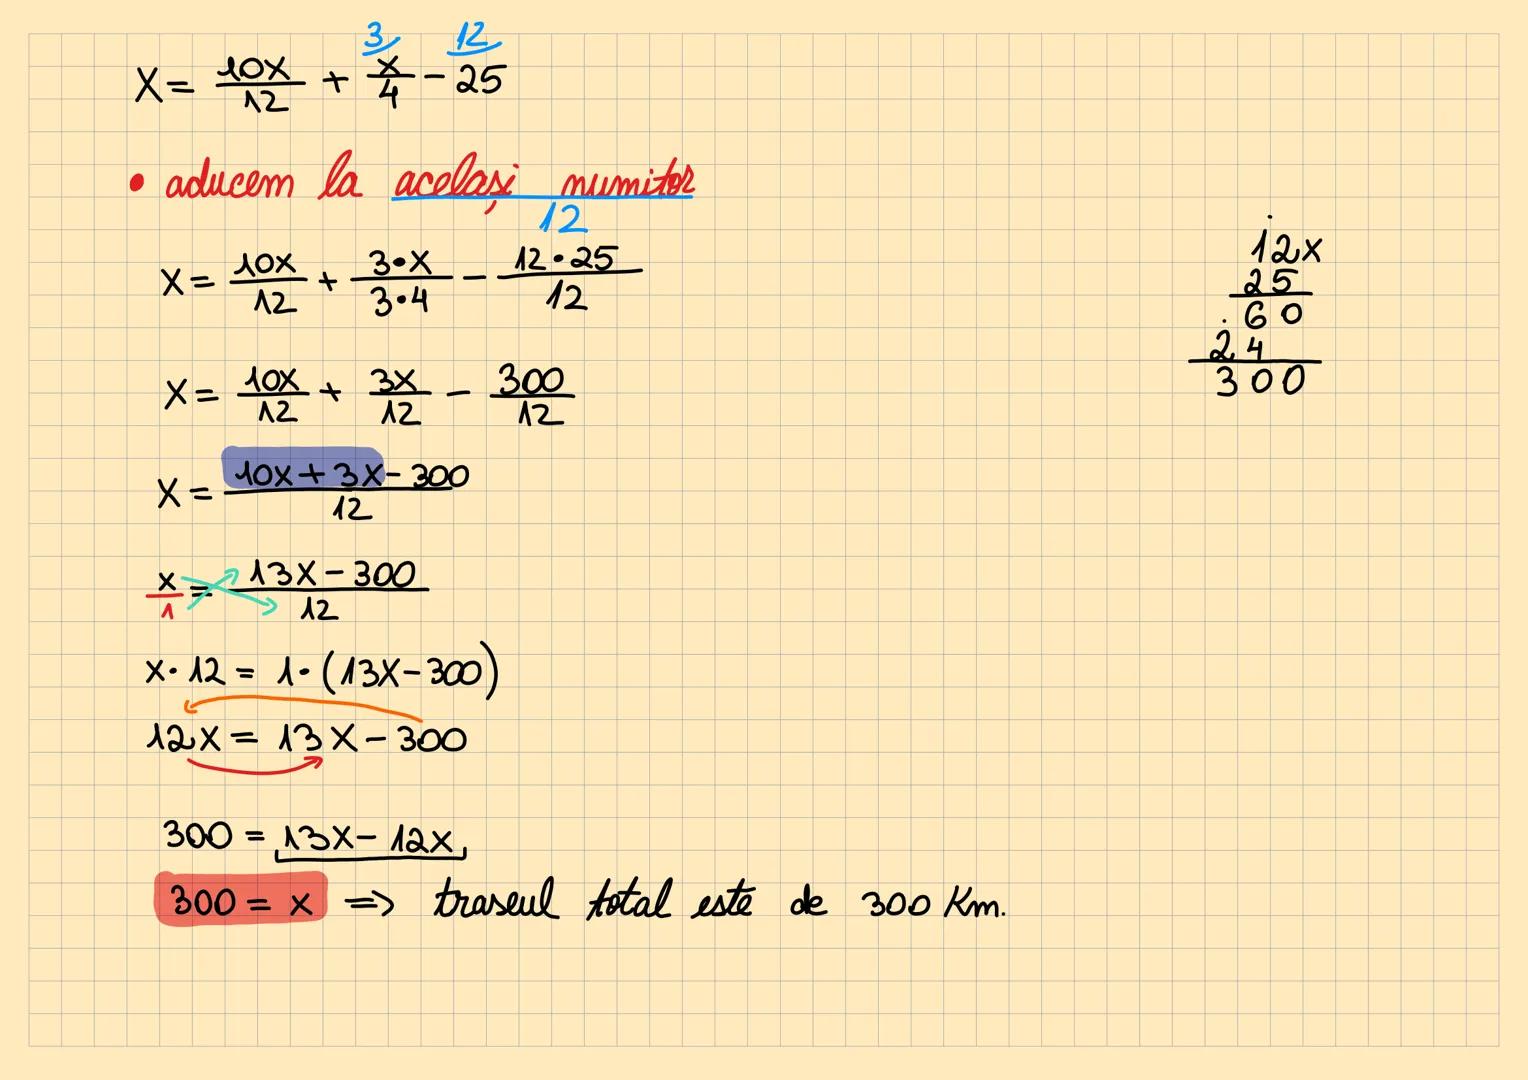 3 12
X = 10x/12 + x/4 - 25
• aducem la același numitor
12
X = 10x/12 + 3•x/3•4 - 12•25/12
X = 10x/12 + 3x/12 - 300/12
X = 10x+3x-300/12
x/1 = 13x-300/12
x•12 = 1•(13x-300)
12x = 13x-300
300 = 13x-12x
300 = x => traseul total este de 300 Km.
12x
25
60
24
300